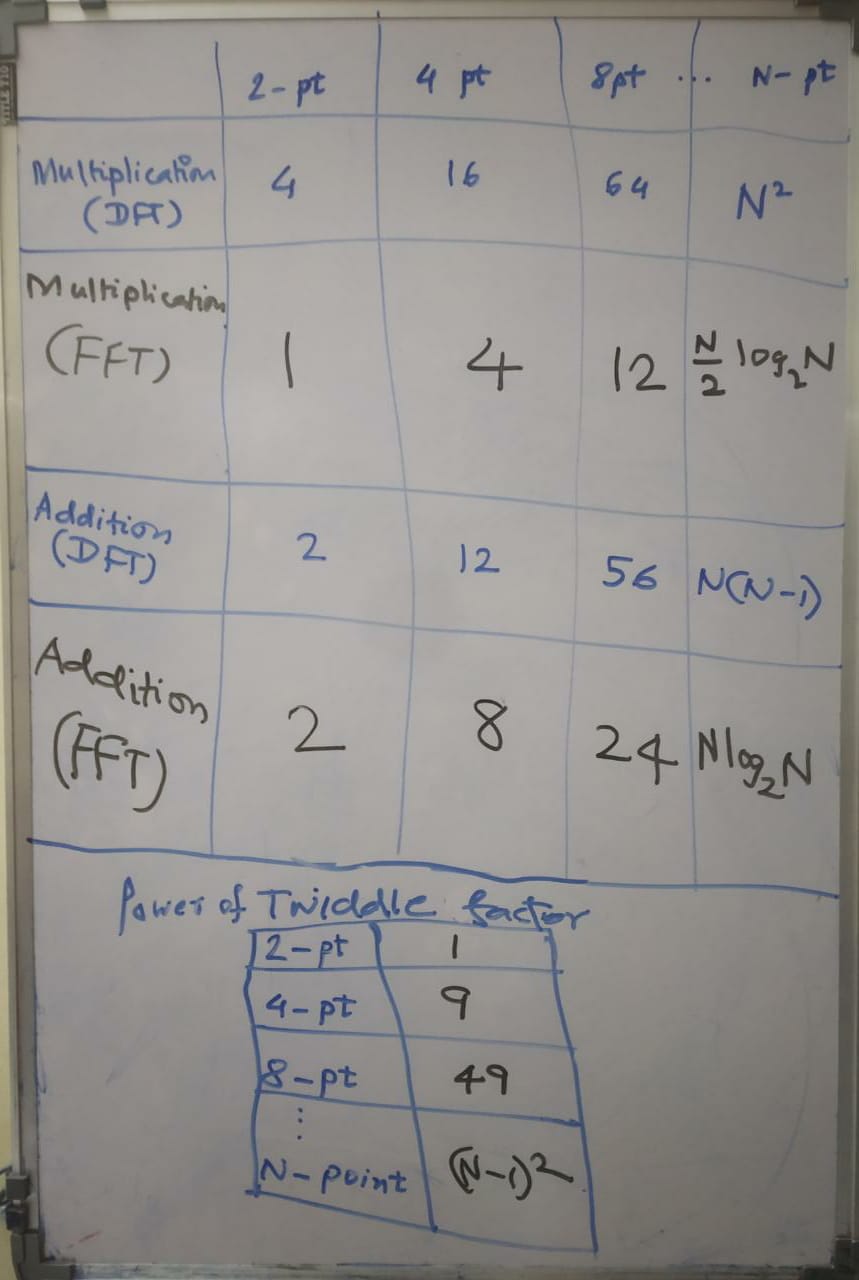 2-pt 4 pt 8pt ... N-pt
Multiplication 4 16 64 N²
(DFT)
Multiplication
(FFT) 1 4 12 N/2 log₂N
Addition
(DFT) 2 12 56 N(N-1)
Addition
(FFT) 2 8 24 Nlog₂N
Power of Twiddle factor
2-pt 1
4-pt 9
8-pt 49
⋮
N-point (N-1)²